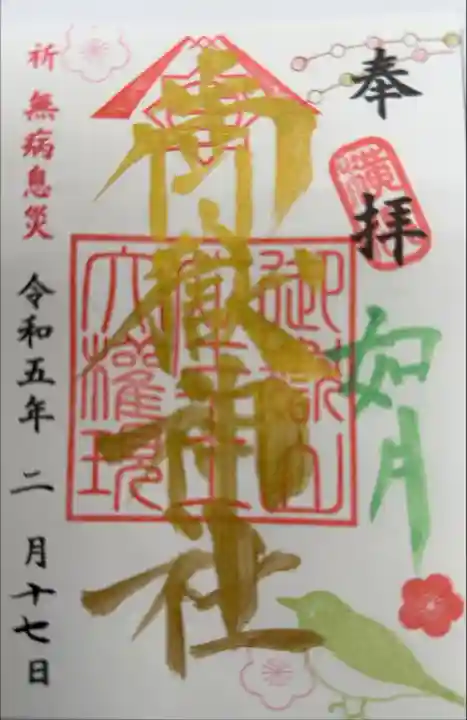 奉拝
如月
御嶽神社
御嶽山
大權現
祈 無病息災
令和五年 二月十七日